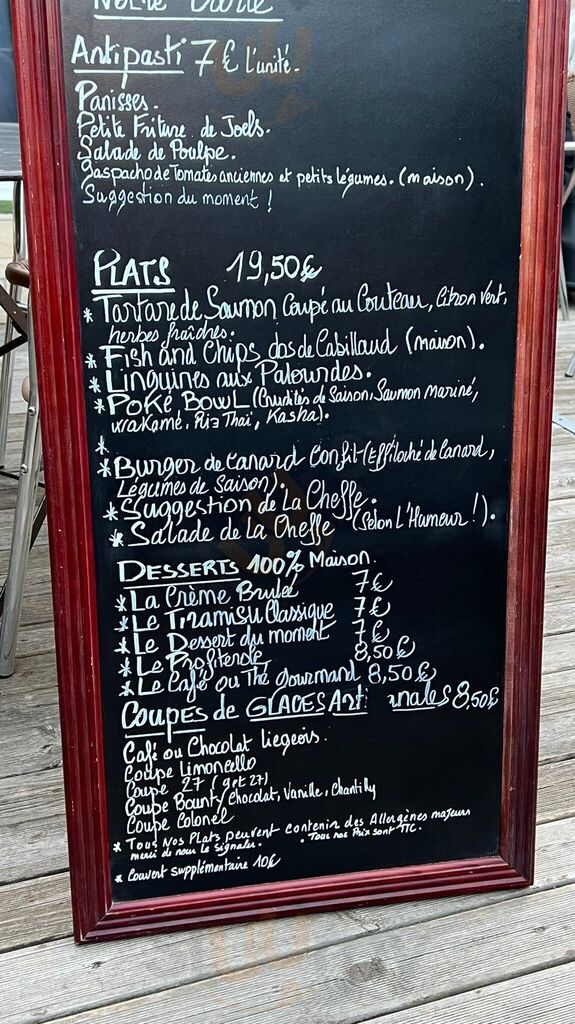 Notre Carte
Antipasti 7€ L'unité.
Panisses.
Petite Friture de Joels.
Salade de Poulpe.
Gaspacho de Tomates anciennes et petits légumes. (maison).
Suggestion du moment !
PLATS 19,50€
* Tartare de Saumon Coupé au Couteau, Citron Vert,
herbes fraîches.
* Fish and Chips dos de Cabillaud (maison).
* Linguines aux Palourdes.
* POKÉ BOWL (Crudités de Saison, Saumon Mariné,
wakamé, Riz Thaï, Kasha).
*
* Burger de Canard Confit (Effiloché de Canard,
Légumes de Saison).
* Suggestion de La Cheffe.
* Salade de La Cheffe (Selon L'Humeur !).
DESSERTS 100% Maison.
* La Crème Brulée 7€
* Le Tiramisu Classique 7€
* Le Dessert du moment 7€
* Le Profiterole 8,50€
* Le Café ou Thé gourmand 8,50€
COUPES de GLACES Arti anales 8,50€
Café ou Chocolat liegeois.
Coupe Limoncello
Coupe 27 (get 27)
Coupe Bounty/Chocolat, Vanille, Chantilly
Coupe Colonel
* Tous Nos Plats peuvent contenir des Allergènes majeurs
merci de nous le signaler. • Tous nos Prix sont TTC.
* Couvert supplémentaire 10€